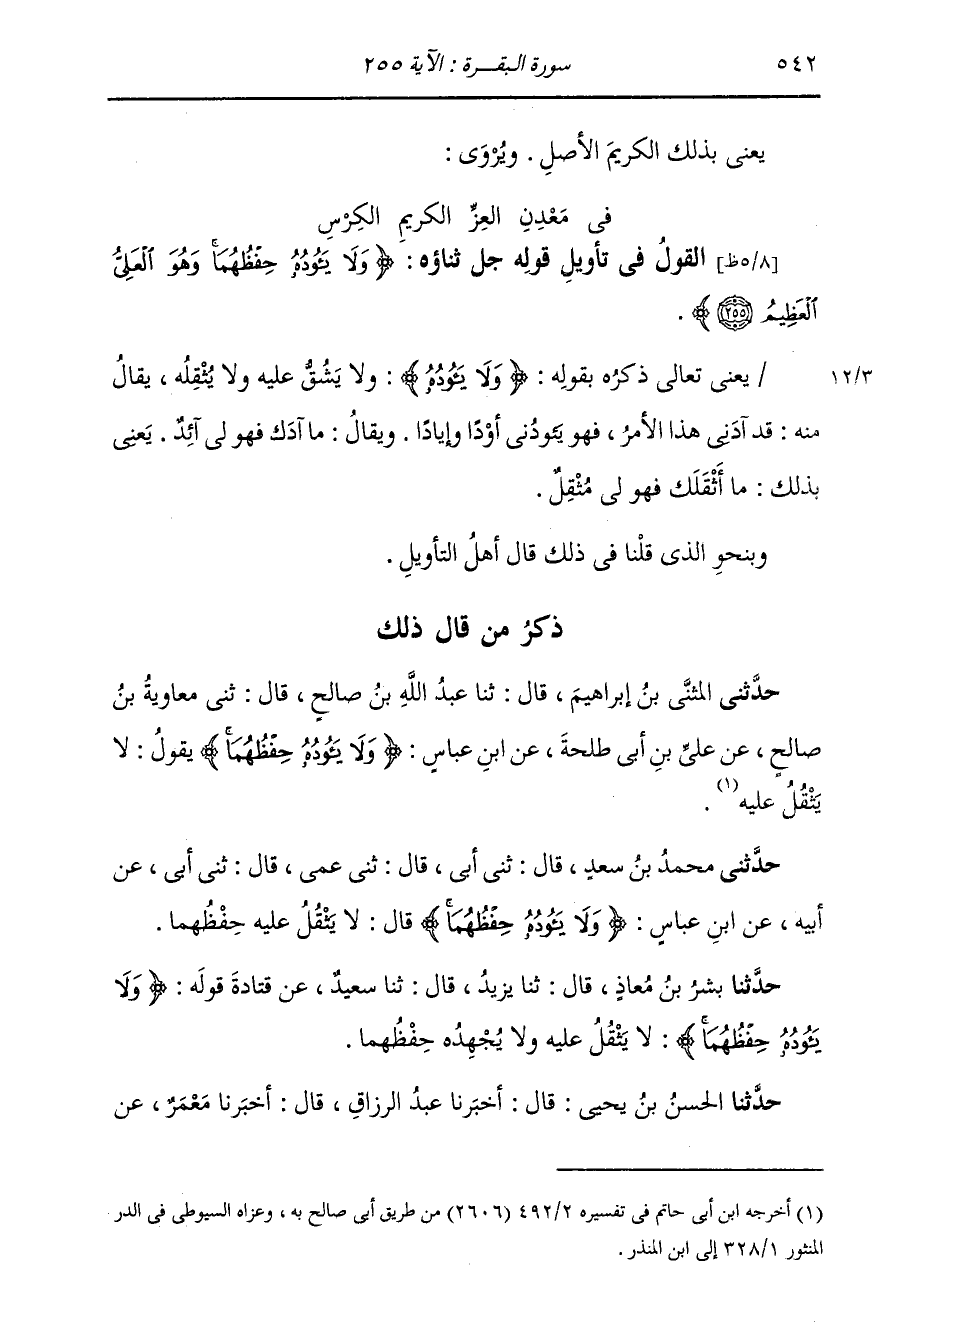 ٥٤٢
سورة البقـــرة : الآية ٢٥٥
يعنى بذلك الكريمَ الأصلِ . ويُرْوَى :
فى مَعْدِنِ العِزِّ الكريمِ الكِرْسِ
[٥/٨ظ] القولُ فى تأويلِ قولِه جل ثناؤه : ﴿ وَلَا يَـُٔودُهُۥ حِفْظُهُمَاۚ وَهُوَ ٱلْعَلِىُّ
ٱلْعَظِيمُ ٢٥٥ ﴾ .
١٢/٣
/ يعنى تعالى ذكرُه بقولِه : ﴿ وَلَا يَـُٔودُهُۥ ﴾ : ولا يَشُقُّ عليه ولا يُثْقِلُه ، يقالُ
منه : قد آدَنِى هذا الأمرُ ، فهو يَئودُنى أوْدًا وإيادًا . ويقالُ : ما آدَك فهو لى آئِدٌ . يَعنِى
بذلك : ما أَثْقَلَك فهو لى مُثْقِلٌ .
وبنحوِ الذى قلْنا فى ذلك قال أهلُ التأويلِ .
ذكرُ من قال ذلك
حدَّثنى المثنَّى بنُ إبراهيمَ ، قال : ثنا عبدُ اللَّهِ بنُ صالحٍ ، قال : ثنى معاويةُ بنُ
صالحٍ ، عن علىِّ بنِ أبى طلحةَ ، عن ابنِ عباسٍ : ﴿ وَلَا يَـُٔودُهُۥ حِفْظُهُمَاۚ ﴾ يقولُ : لا
يَثْقُلُ عليه(١) .
حدَّثنى محمدُ بنُ سعدٍ ، قال : ثنى أبى ، قال : ثنى عمى ، قال : ثنى أبى ، عن
أبيه ، عن ابنِ عباسٍ : ﴿ وَلَا يَـُٔودُهُۥ حِفْظُهُمَاۚ ﴾ قال : لا يَثْقُلُ عليه حِفْظُهما .
حدَّثنا بشرُ بنُ مُعاذٍ ، قال : ثنا يزيدُ ، قال : ثنا سعيدٌ ، عن قتادةَ قولَه : ﴿ وَلَا
يَـُٔودُهُۥ حِفْظُهُمَاۚ ﴾ : لا يَثْقُلُ عليه ولا يُجْهِدُه حِفْظُهما .
حدَّثنا الحسنُ بنُ يحيى : قال : أخبَرنا عبدُ الرزاقِ ، قال : أخبَرنا مَعْمَرٌ ، عن
(١) أخرجه ابن أبى حاتم فى تفسيره ٤٩٢/٢ (٢٦٠٦) من طريق أبى صالح به ، وعزاه السيوطى فى الدر
المنثور ٣٢٨/١ إلى ابن المنذر .